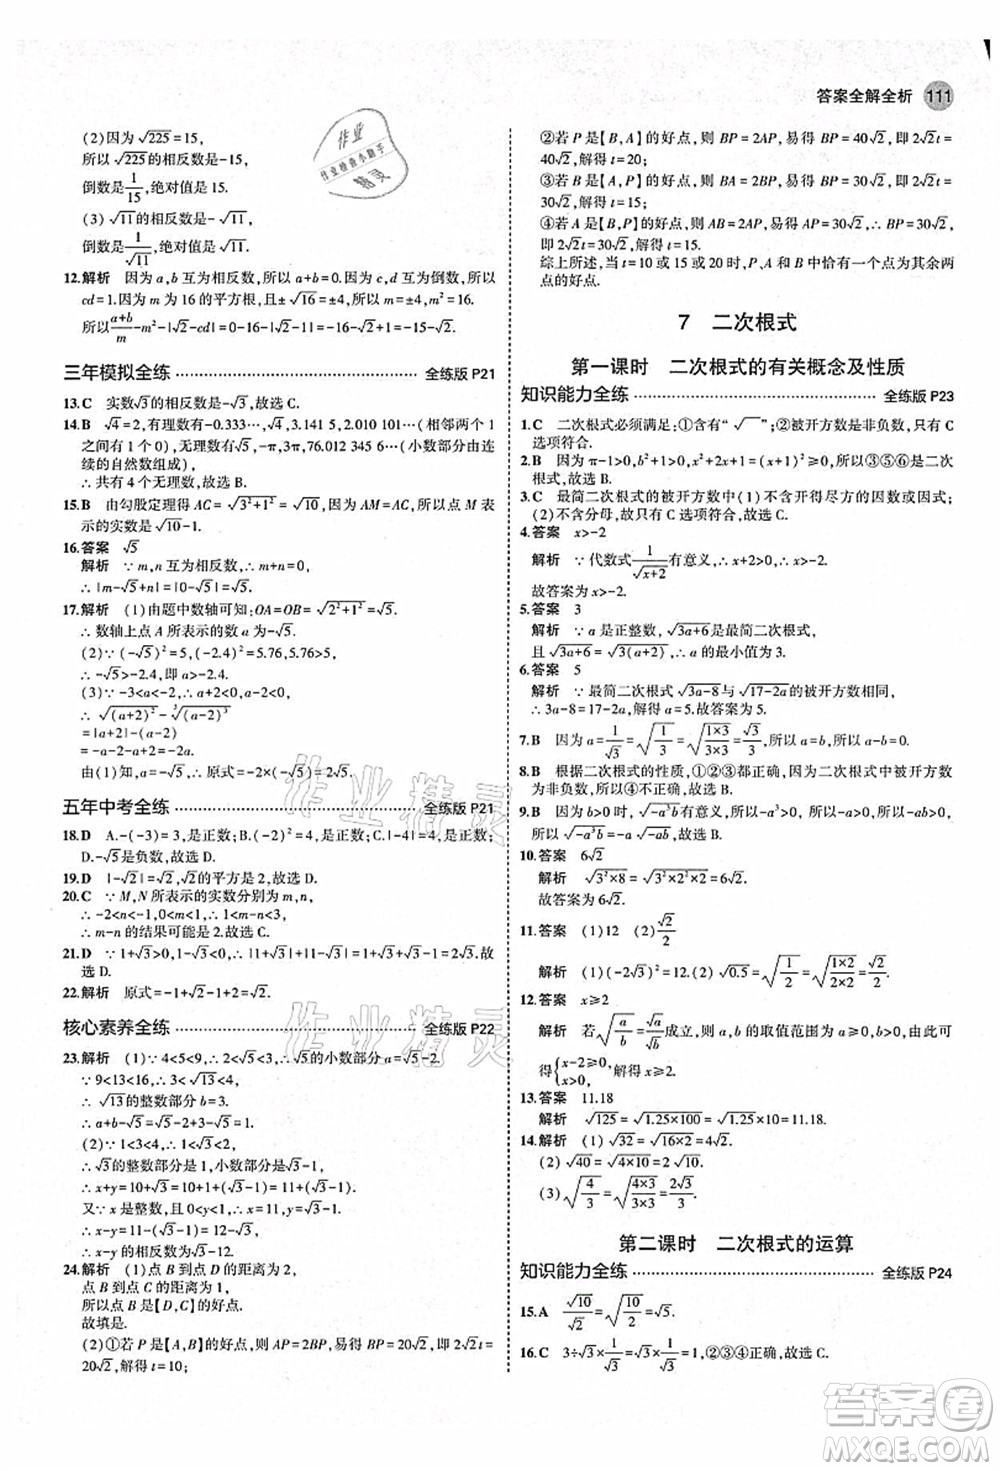 答案全解全析 111
(2)因为√225=15,
所以√225的相反数是-15,
倒数是1/15,绝对值是15.
(3)√11的相反数是-√11,
倒数是1/√11,绝对值是√11.
12.解析 因为a,b互为相反数,所以a+b=0.因为c,d互为倒数,所以
cd=1.因为m为16的平方根,且±√16=±4,所以m=±4,m²=16.
所以(a+b)/m-m²-|√2-cd|=0-16-|√2-1|=0-16-√2+1=-15-√2.
三年模拟全练 全练版P21
13.C 实数√3的相反数是-√3,故选C.
14.B √4=2,有理数有-0.333…,√4,3.141 5,2.010 101…(相邻两个
1之间有1个0),无理数有√5,-π,3π,76.012 345 6…(小数部分由连
续的自然数组成),
∴共有4个无理数.故选B.
15.B 由勾股定理得AC=√(3²+1²)=√10,∵AM=AC,所以点M表
示的实数是√10-1.
16.答案 √5
解析 ∵m,n互为相反数,∴m+n=0,
∴|m-√5+n|=|-√5|=√5.
17.解析 (1)由题中数轴可知:OA=OB=√(2²+1²)=√5,
∴数轴上点A所表示的数是-√5.
(2)∵(-√5)²=5,(-2.4)²=5.76,5.76>5,
∴-√5>-2.4,即a>-2.4.
(3)∵-3<a<-2,
∴√(a+2)²-∛(a-2)³
=|a+2|-(a-2)
=-a-2-a+2
=-2a,
由(1)知,a=-√5,∴原式=-2×(-√5)=2√5.
五年中考全练 全练版P21
18.D A.-(-3)=3,是正数;B.(-2)²=4,是正数;C.|-4|=4,是正数;
D.-√5是负数,故选D.
19.D |-√2|=√2,√2的平方是2.故选D.
20.C ∵M,N所表示的实数为m,n,
∴-2<n<-1,0<m<1,∴1<m-n<3,
∴m-n的结果可能是2.故选C.
21.D ∵1+√3>0,1-√3<0,∴|1+√3|-|1-√3|=1+√3+1-√3=2.故
选D.
22.解析 原式=-1+√2-1+2=√2.
核心素养全练 全练版P22
23.解析 (1)∵4<5<9,∴2<√5<3,∴√5的小数部分a=√5-2.
∵9<13<16,∴3<√13<4,
∴√13的整数部分b=3.
∴a+b-√5=√5-2+3-√5=1.
(2)∵1<3<4,∴1<√3<2,
∴√3的整数部分是1,小数部分是√3-1,
∴x+y=10+√3=10+1+(√3-1)=11+(√3-1).
又∵x是整数,且0<y<1,
∴x=11,y=√3-1.
∴x-y=11-(√3-1)=12-√3,
∴x-y的相反数为-(12-√3)=√3-12.
24.解析 (1)点B到点D的距离是√2,
点B到点C的距离是2√2,
所以点B是【D,C】的好点.
故填是.
(2)①若P是【A,B】的好点,则AP=2BP,易得BP=20√2,即2√2t=
20√2,解得t=10;
②若P是【B,A】的好点,则BP=2AP,易得BP=40√2,即2√2t=
40√2,解得t=20;
③若B是【A,P】的好点,则BA=2BP,易得BP=30√2,即2√2t=
30√2,解得t=15;
④若A是【B,P】的好点,则AB=2AP,易得AP=30√2,∴BP=30√2,
即2√2t=30√2,解得t=15.
综上所述,当t=10或15或20时,P,A和B中恰有一个点为其余两
点的好点.
7 二次根式
第一课时 二次根式的有关概念及性质
知识能力全练 全练版P23
1.C 二次根式必须满足:①含有“√ ”;②被开方数是非负数,只有C
选项符合.
2.B 因为π-1>0,b²≥0,7>0,m²+1>0,所以③⑤⑥是二次
根式.故选B.
3.C 最简二次根式的被开方数中(1)不含开得尽方的因数或因式;
(2)不含分母,故只有C选项符合,故选C.
4.答案 x>-2
解析 ∵代数式1/√(x+2)有意义,∴x+2>0,解得x>-2.
故答案为x>-2.
5.答案 3
解析 ∵a是正整数,√(3a+6)是最简二次根式,
且√(3a+6)=√(3(a+2)),∴a的最小值为3.
6.答案 5
解析 ∵最简二次根式√(3a-8)与√(17-2a)的被开方数相同,
∴3a-8=17-2a,解得a=5.故答案为5.
7.B 因为a=1/√3=√(1/3)=√((1×3)/(3×3))=√3/3,所以a=b,所以选B.
8.B 根据二次根式的性质,①②③都正确,而④没说明被开方数
为非负数,所以④不正确.故选B.
9.B 因为b>0时,√(-a³b)有意义,所以-a³b≥0,所以a≤0,
所以√(-a³b)=-a√(-ab),所以选B.
10.答案 6√2
解析 √(3²×8)=√(3²×2²×2)=6√2.
故答案为6√2.
11.答案 (1)12 (2)√2/2
解析 (1)(-√12)²=12.(2)√0.5=√(1/2)=√((1×2)/(2×2))=√2/2.
12.答案 x≥2
解析 若√(a/b)=√a/√b成立,则a,b的取值范围为a≥0,b>0,可
得{x-2≥0, x>0, 解得x≥2.
13.答案 11.18
解析 √125=√(1.25×100)=√1.25×10=11.18.
14.解析 (1)√32=√(16×2)=4√2.
(2)√40=√(4×10)=2√10.
(3)√(4/3)=√((4×3)/(3×3))=2√3/3.
第二课时 二次根式的运算
知识能力全练 全练版P24
15.A √10/√2=√(10/2)=√5.
16.C 3÷√3×1/√3=√3×1/√3=1,②③④正确,故选C.
作业精灵
作业检查小助手
答案卷
MXQE.COM